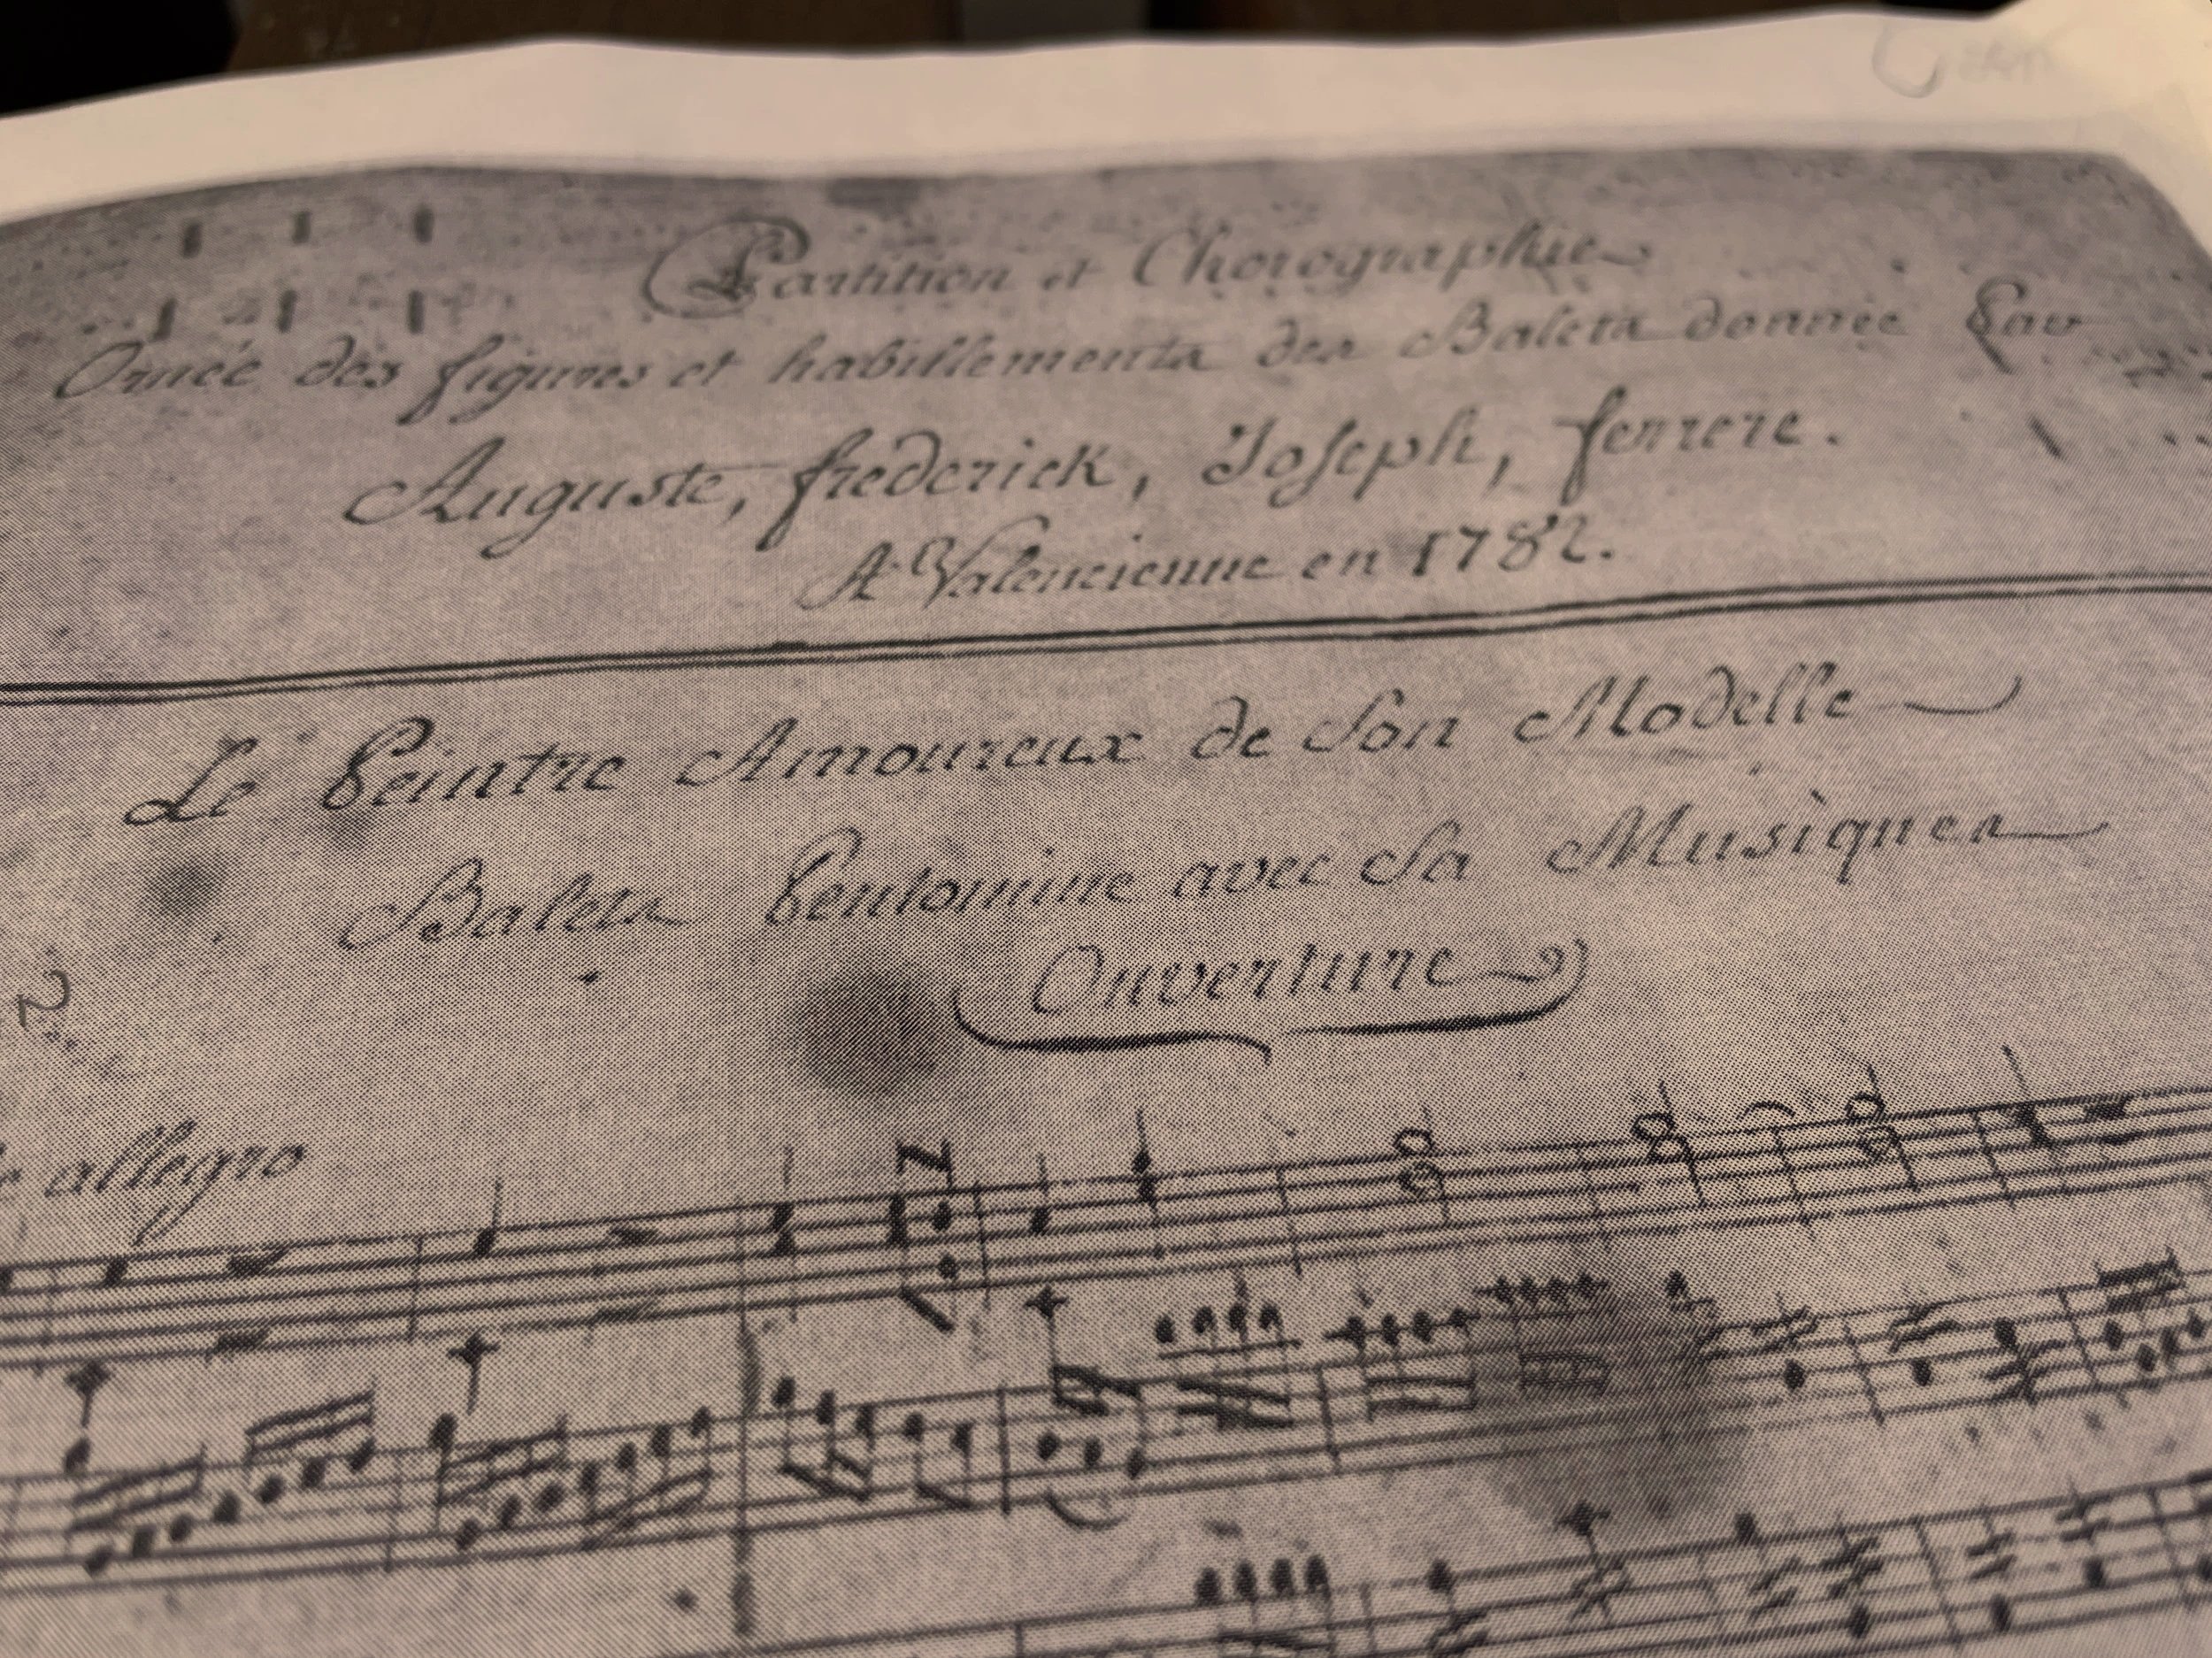 Partition et Chorographie
Ornée des figures et habillements des Balets donnée Par
Auguste, frederick, Joseph, ferrere.
A Valencienne en 1782.
Le Peintre Amoureux de Son Modelle
Balets Pentomine avec Sa Musiques
Ouverture
2
allegro